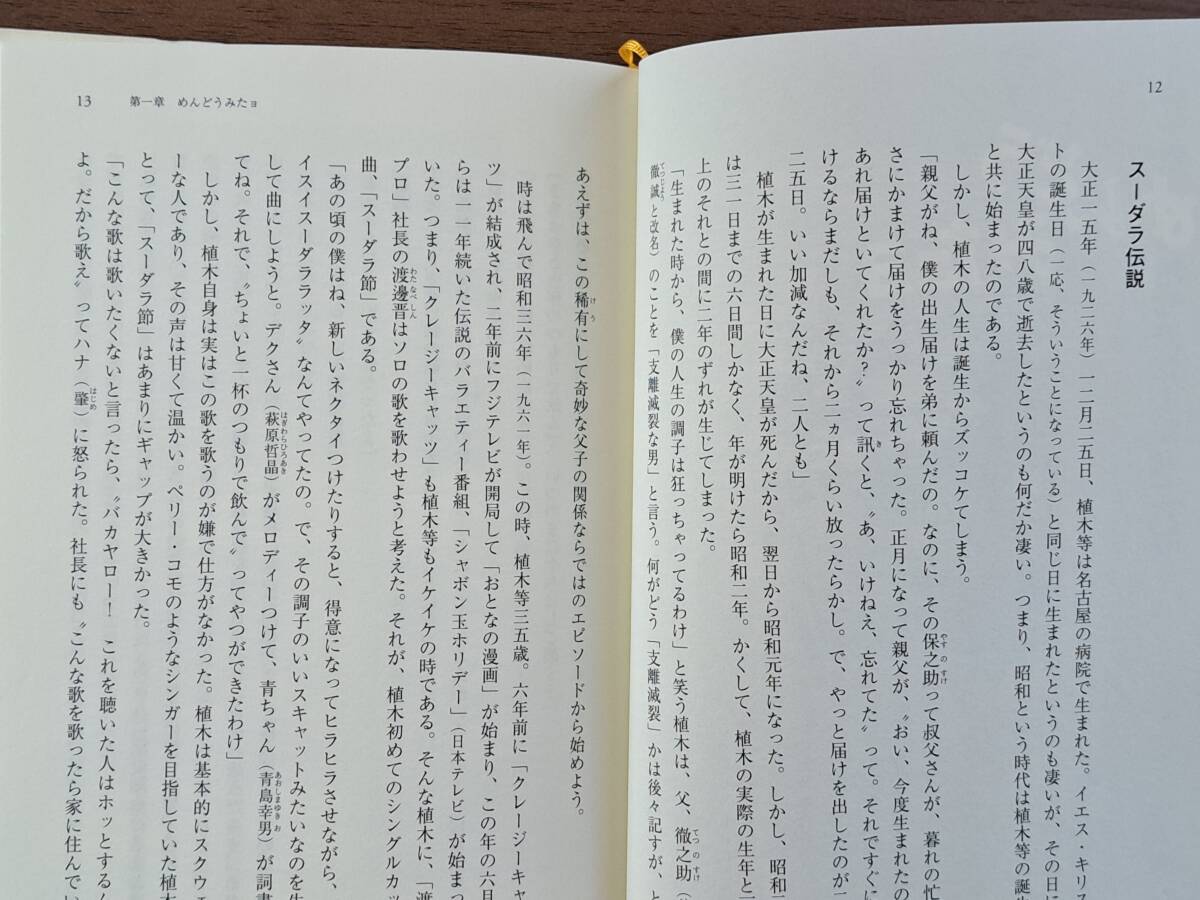 12
スーダラ伝説
大正一五年（一九二六年）一二月二五日、植木等は名古屋の病院で生まれた。イエス・キリス
トの誕生日（一応、そういうことになっている）と同じ日に生まれたというのも凄いが、その日に
大正天皇が四八歳で逝去したというのも何だか凄い。つまり、昭和という時代は植木等の誕生
と共に始まったのである。
しかし、植木の人生は誕生からズッコケてしまう。
「親父がね、僕の出生届けを弟に頼んだの。なのに、その保之助って叔父さんが、暮れの忙し
さにかまけて届けをうっかり忘れちゃった。正月になって親父が、〝おい、今度生まれたの、
あれ届けといてくれたか？〟って訊くと、〝あ、いけねえ、忘れてた〟って。それですぐに
けるならまだしも、それから二ヵ月くらい放ったらかし。で、やっと届けを出したのが二
二五日。いい加減なんだね、二人とも」
植木が生まれた日に大正天皇が死んだから、翌日から昭和元年になった。しかし、昭和
は三一日までの六日間しかなく、年が明けたら昭和二年。かくして、植木の実際の生年と
上のそれとの間に二年のずれが生じてしまった。
「生まれた時から、僕の人生の調子は狂っちゃってるわけ」と笑う植木は、父、徹之助（
徹誠と改名）のことを「支離滅裂な男」と言う。何がどう「支離滅裂」かは後々記すが、と
13 第一章 めんどうみたョ
あえずは、この稀有にして奇妙な父子の関係ならではのエピソードから始めよう。
時は飛んで昭和三六年（一九六一年）。この時、植木等三五歳。六年前に「クレージーキャ
ツ」が結成され、二年前にフジテレビが開局して「おとなの漫画」が始まり、この年の六月
らは一一年続いた伝説のバラエティー番組、「シャボン玉ホリデー」（日本テレビ）が始まっ
いた。つまり、「クレージーキャッツ」も植木等もイケイケの時である。そんな植木に、「渡
プロ」社長の渡邊晋はソロの歌を歌わせようと考えた。それが、植木初めてのシングルカッ
曲、「スーダラ節」である。
「あの頃の僕はね、新しいネクタイつけたりすると、得意になってヒラヒラさせながら、
イスイスーダララッタ〟なんてやってたの。で、その調子のいいスキャットみたいなのを生
して曲にしようと。デクさん（萩原哲晶）がメロディーつけて、青ちゃん（青島幸男）が詞書
てね。それで、〝ちょいと一杯のつもりで飲んで〟ってやつができたわけ」
しかし、植木自身は実はこの歌を歌うのが嫌で仕方がなかった。植木は基本的にスクウェ
ーな人であり、その声は甘くて温かい。ペリー・コモのようなシンガーを目指していた植木
とって、「スーダラ節」はあまりにギャップが大きかった。
「こんな歌は歌いたくないと言ったら、〝バカヤロー！ これを聴いた人はホッとするん
よ。だから歌え〟ってハナ（肇）に怒られた。社長にも〝こんな歌を歌ったら家に住んでい